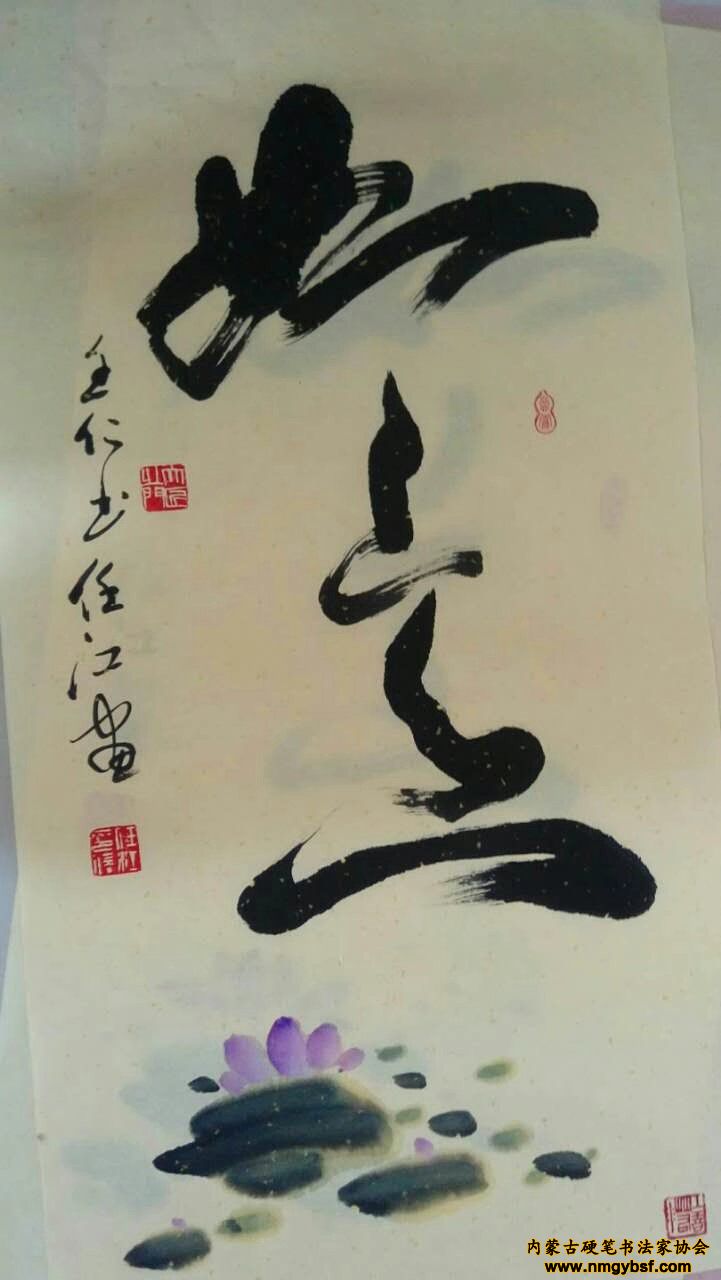 如意
仁书任江画
内蒙古硬笔书法家协会
www.nmgybsf.com